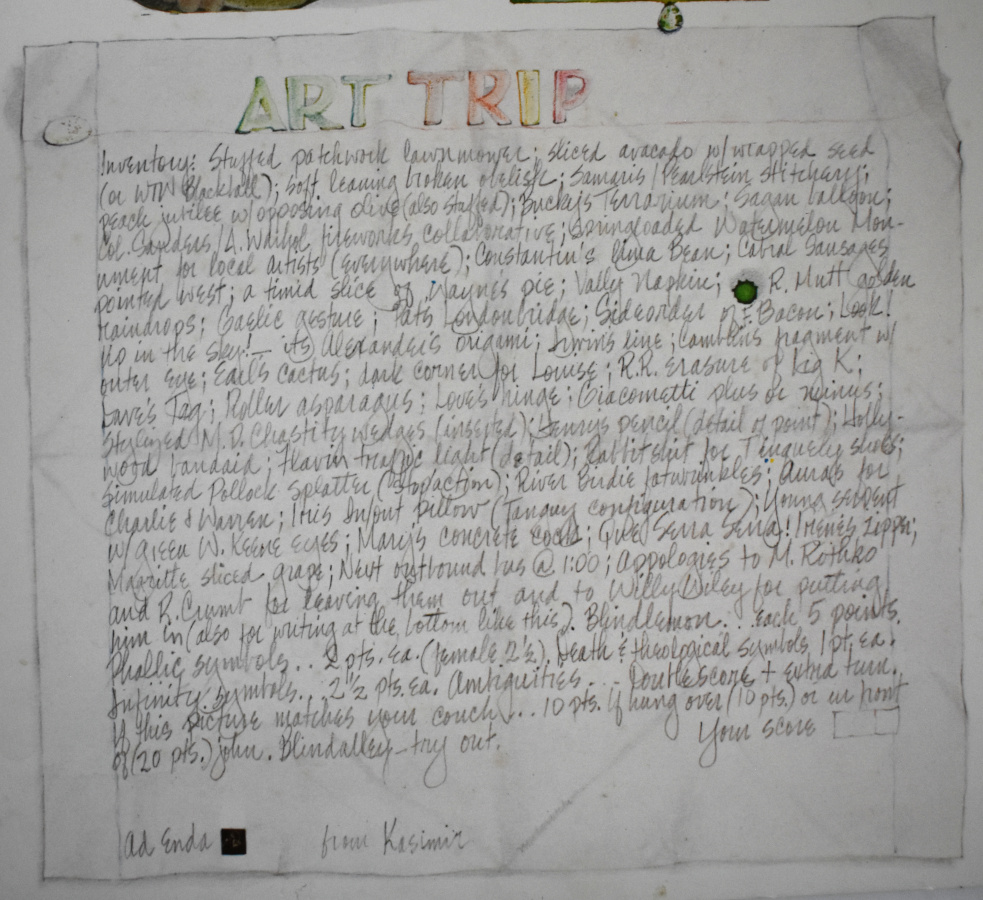 ART TRIP
Inventory: Stuffed patchwork lawnmower; sliced avocado w/wrapped seed
(or WTW Blackball); soft leaning broken obelisk; Samaris/Pearlstein Stitchery;
peach jubilee w/opposing olive (also stuffed); Bucky's Terrarium; Sagan balloon;
Col. Sanders/A. Warhol fireworks collaborative; Springloaded Watermelon Mon-
ument for local artists (everywhere); Constantin's Lima Bean; Cabral Sausages
pointed west; a timid slice of Wayne's pie; Vally Napkin; R. Mutt golden
raindrops; Gaelic gesture; Pats Londonbridge; Sideorder of F. Bacon; Look!
Up in the sky!— its Alexander's origami; Irwins line; Camblins fragment w/
outer eye; Earl's cactus; dark corner for Louise; R.R. erasure of big K;
Lave's Tag; Roller asparagus; Love's hinge; Giacometti plus or minus;
Stylized M.D. Chastity wedges (inserted); Henry's pencil (detail of point); Holly-
wood bandaid; Flavin traffic light (detail); Rabbitshit for Tinguely shoes;
Simulated Pollock Splatter (stopaction); River Birdie fatwrinkles; Auras for
Charlie & Warren; Iris In/out pillow (Tanguy configuration); Young serpent
w/ green W. Keene eyes; Mary's concrete cocks; Que Serra Serra! Irene's zipper;
Magritte sliced grape; Newt outbound bus @ 1:00; Appologies to M. Rothko
and R. Crumb for leaving them out and to Willy Wiley for putting
him in (also for writing at the bottom like this). Blindlemon... each 5 points.
Phallic symbols... 2 pts. ea. (female 2½), Death & theological symbols 1 pt. ea.
Infinity symbols... 2½ pts. ea. Ambiguities... Doublescore + extra turn.
If this picture matches your couch... 10 pts. If hung over (10 pts.) or in front
of (20 pts.) john. Blindalley—try out.
Your score
Ad Enda
from Kasimir